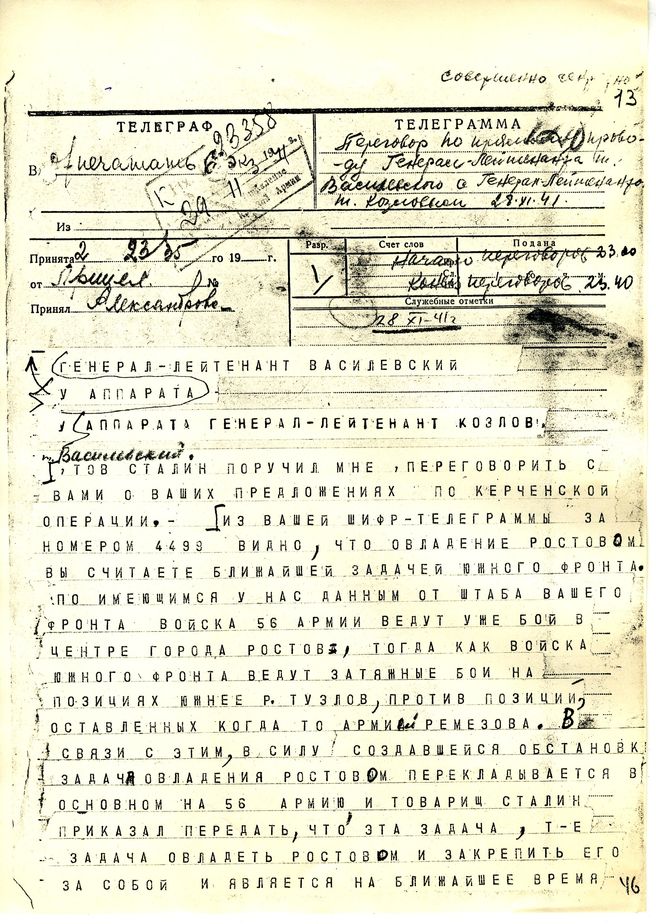 Совершенно
13
ТЕЛЕГРАФ
23358
ТЕЛЕГРАММА
В Отпечатано 6 экз.
Переговор по прямому прово-
ду Генерал-Лейтенанта т.
Василевского с Генерал-Лейтенантом
т. Козловым 28.XI.41.
29 11
Армии
Из
Принята 2 23 35 го 19 г.
Разр.
Счет слов
Подана
Начало переговоров 23.00
Конец переговоров 23.40
от Принел №
1/
Принял Александрова
Служебные отметки
28 XI-41г
ГЕНЕРАЛ-ЛЕЙТЕНАНТ ВАСИЛЕВСКИЙ
У АППАРАТА
У АППАРАТА ГЕНЕРАЛ-ЛЕЙТЕНАНТ КОЗЛОВ.
Василевский.
ТОВ СТАЛИН ПОРУЧИЛ МНЕ ,ПЕРЕГОВОРИТЬ С
ВАМИ О ВАШИХ ПРЕДЛОЖЕНИЯХ ПО КЕРЧЕНСКОЙ
ОПЕРАЦИИ.- ИЗ ВАШЕЙ ШИФР-ТЕЛЕГРАММЫ ЗА
НОМЕРОМ 4499 ВИДНО, ЧТО ОВЛАДЕНИЕ РОСТОВОМ
ВЫ СЧИТАЕТЕ БЛИЖАЙШЕЙ ЗАДАЧЕЙ ЮЖНОГО ФРОНТА.
ПО ИМЕЮЩИМСЯ У НАС ДАННЫМ ОТ ШТАБА ВАШЕГО
ФРОНТА ВОЙСКА 56 АРМИИ ВЕДУТ УЖЕ БОЙ В
ЦЕНТРЕ ГОРОДА РОСТОВ, ТОГДА КАК ВОЙСКА
ЮЖНОГО ФРОНТА ВЕДУТ ЗАТЯЖНЫЕ БОИ НА
ПОЗИЦИЯХ ЮЖНЕЕ Р. ТУЗЛОВ, ПРОТИВ ПОЗИЦИЙ,
ОСТАВЛЕННЫХ КОГДА ТО АРМИЕЙ РЕМЕЗОВА. В
СВЯЗИ С ЭТИМ, В СИЛУ СОЗДАВШЕЙСЯ ОБСТАНОВК
ЗАДАЧА ОВЛАДЕНИЯ РОСТОВОМ ПЕРЕКЛАДЫВАЕТСЯ В
ОСНОВНОМ НА 56 АРМИЮ И ТОВАРИЩ СТАЛИН
ПРИКАЗАЛ ПЕРЕДАТЬ, ЧТО ЭТА ЗАДАЧА , Т-Е
ЗАДАЧА ОВЛАДЕТЬ РОСТОВОМ И ЗАКРЕПИТЬ ЕГО
ЗА СОБОЙ И ЯВЛЯЕТСЯ НА БЛИЖАЙШЕЕ ВРЕМЯ
46